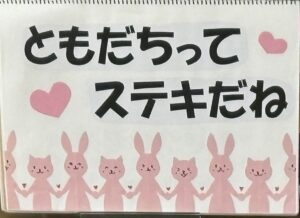 ともだちって
ステキだね